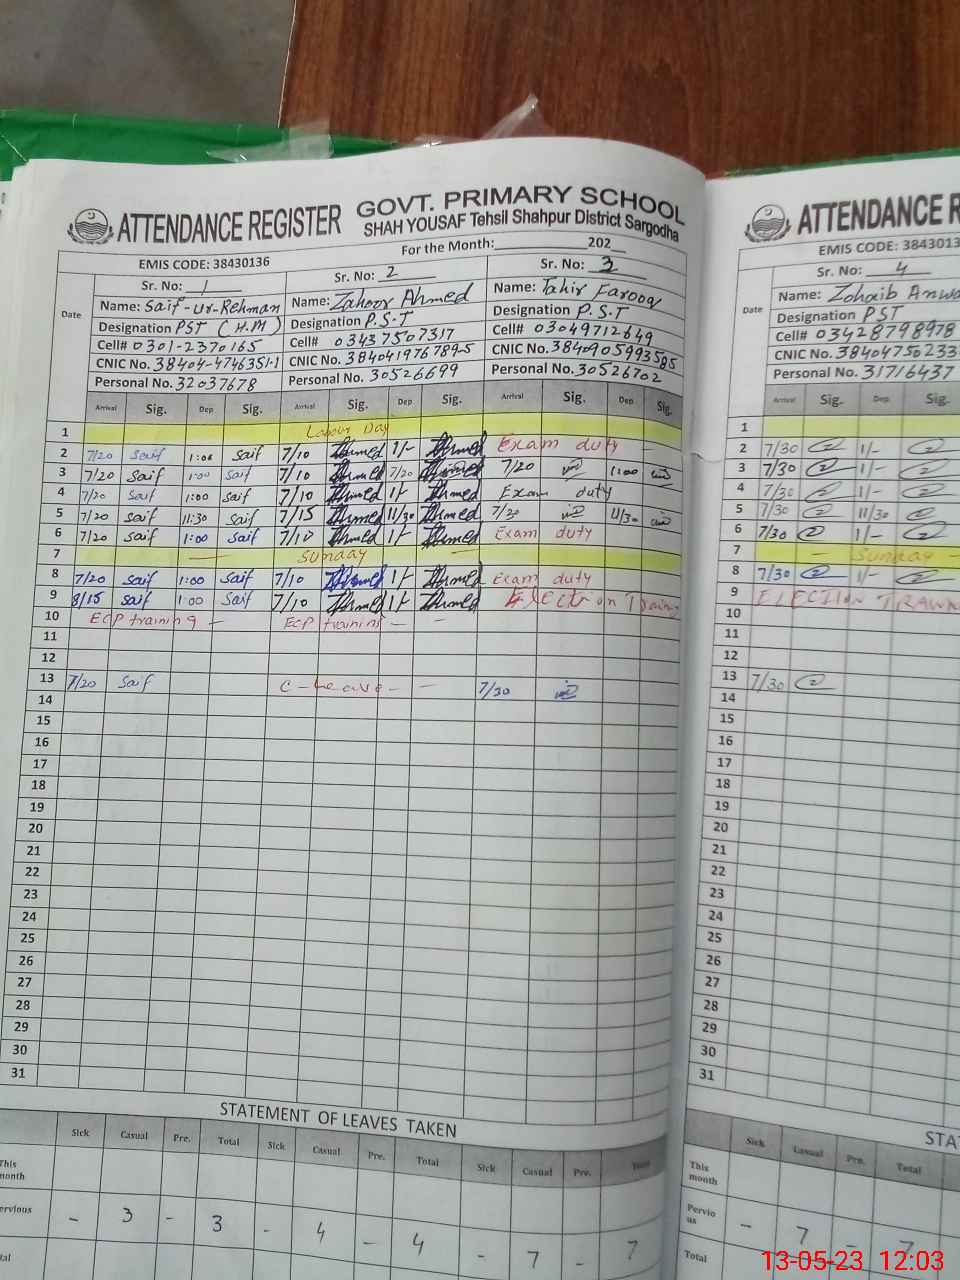 ATTENDANCE REGISTER GOVT. PRIMARY SCHOOL
SHAH YOUSAF Tehsil Shahpur District Sargodha
For the Month: 202
EMIS CODE: 38430136
Sr. No: 1 Sr. No: 2 Sr. No: 3
Date
Name: Saif-ur-Rehman Name: Zahoor Ahmed Name: Tahir Farooq
Designation PST (H.M) Designation P.S.T Designation P.S.T
Cell# 0301-2370165 Cell# 03437507317 Cell# 03049712649
CNIC No. 38404-4746351-1 CNIC No. 384041976789-5 CNIC No. 3840905993585
Personal No. 32037678 Personal No. 30526699 Personal No. 30526702
Arrival Sig. Dep Sig. Arrival Sig. Dep Sig. Arrival Sig. Dep Sig.
1 Labour Day
2 7/20 Saif 1:00 Saif 7/10 Ahmed 1/- Ahmed Exam duty -
3 7/20 Saif 1:00 Saif 7/10 Ahmed 7/20 Ahmed 7/20 1:00
4 7/20 Saif 1:00 Saif 7/10 Ahmed 1/- Ahmed Exam duty
5 7/20 Saif 11:30 Saif 7/15 Ahmed 11/30 Ahmed 7/30 11/30
6 7/20 Saif 1:00 Saif 7/10 Ahmed 1/- Ahmed Exam duty
7 — Sunday —
8 7/20 Saif 1:00 Saif 7/10 Ahmed 1/- Ahmed Exam duty
9 8/15 Saif 1:00 Saif 7/10 Ahmed 1/- Ahmed Election Traning
10 ECP training - ECP training - -
11
12
13 7/20 Saif C-leave - - 7/30
14
15
16
17
18
19
20
21
22
23
24
25
26
27
28
29
30
31
STATEMENT OF LEAVES TAKEN
Sick Casual Pre. Total Sick Casual Pre. Total Sick Casual Pre. Total
This month
Pervious - 3 - 3 - 4 - 4 - 7 - 7
ATTENDANCE R
EMIS CODE: 3843013
Sr. No: 4
Date
Name: Zohaib Anwa
Designation PST
Cell# 03428798978
CNIC No. 38404750233
Personal No. 31716437
Arrival Sig. Dep Sig.
1
2 7/30 1/-
3 7/30 1/-
4 7/30 1/-
5 7/30 11/30
6 7/30 1/-
7 - Sunday -
8 7/30 1/-
9 ELECTION
10
11
12
13 7/30
14
15
16
17
18
19
20
21
22
23
24
25
26
27
28
29
30
31
STA
Sick Casual Pre. Total
This month
Pervious - 7 - 7
Total
13-05-23 12:03